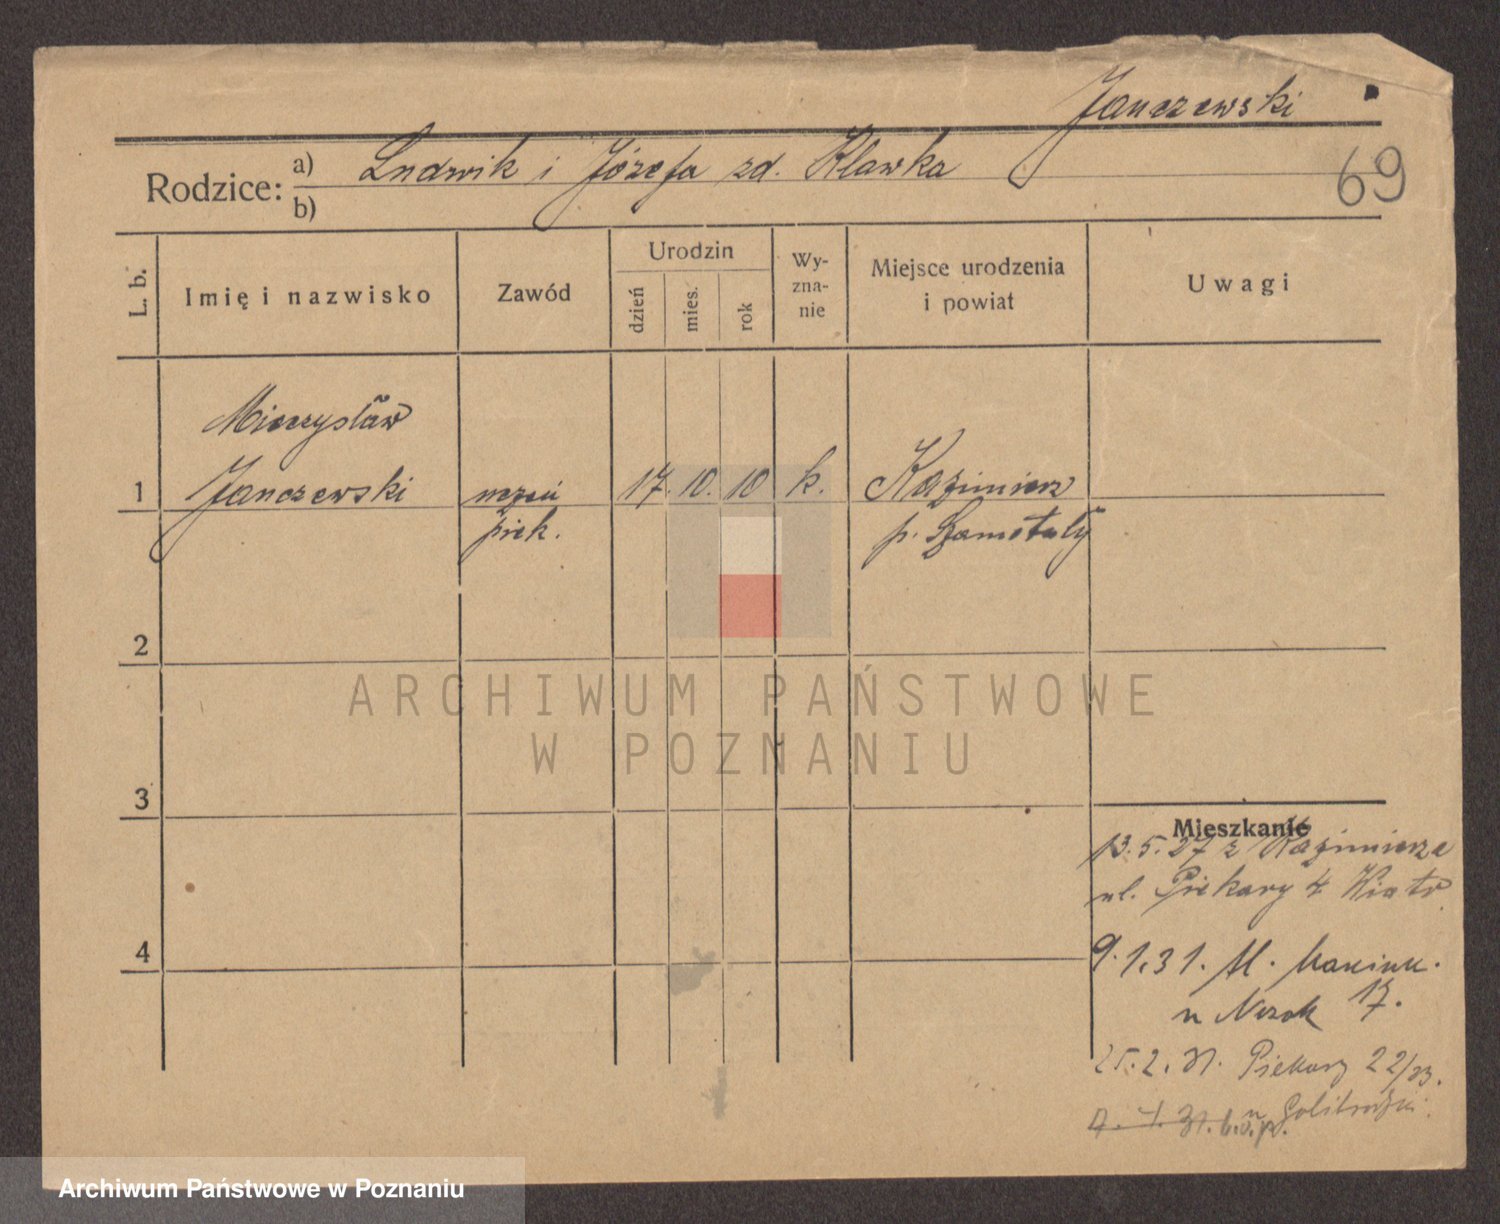 Janczewski
69
Rodzice: a) Ludwik i Józefa zd. Klawka
b)
L. b.
Imię i nazwisko
Zawód
Urodzin
dzień
mies.
rok
Wy-
zna-
nie
Miejsce urodzenia
i powiat
Uwagi
Mieczysław
1 Janczewski uczeń 17. 10. 10 k. Kazimierz
piek. p. Szamotuły
2
ARCHIWUM PAŃSTWOWE
W POZNANIU
3
Mieszkanie
13.5.27 z Kazimierza
ul. Piekary 4
4
9.1.31. M.
u Nozok 17.
25.2.31. Piekary 22/23.
u
4. 31.
Archiwum Państwowe w Poznaniu